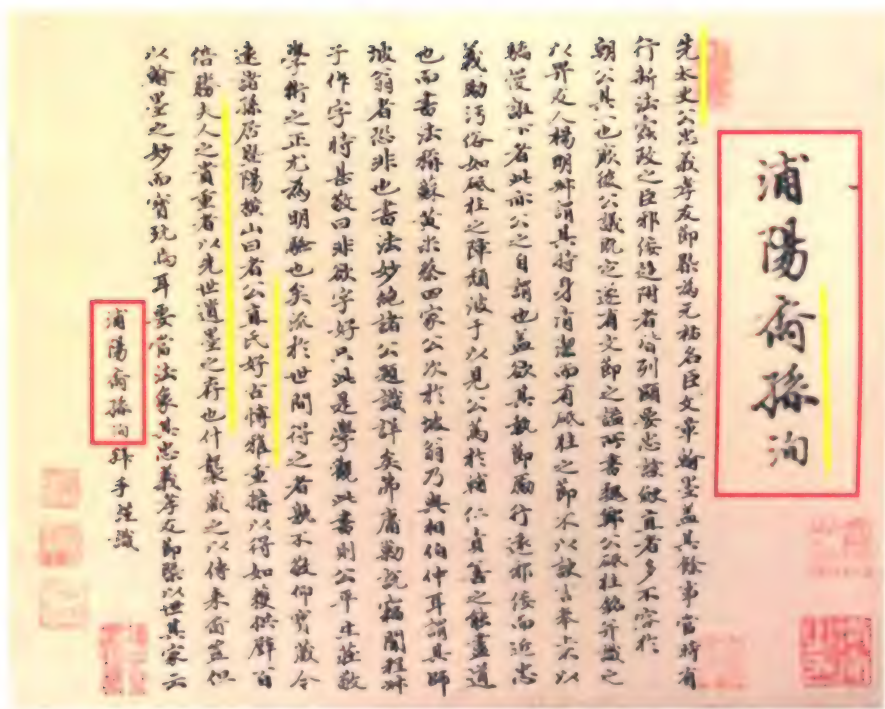 浦陽裔孫洵
先太史公忠義孝友節槩為元祐名臣文章翰墨蓋其餘事當時有
行新法竊政之臣邪佞趋附者皆列顯要忠諒鯁直者多不容於
朝公其一也厥後公議既定遂有文節之謚所書魏鄭公砥柱銘并識之
以畀友人楊明叔謂其持身清潔而有砥柱之節不以諛言奉上不以
驕慢誑下者此亦公之自謂也蓋欲其執節厲行遠邪佞而近忠
義助污俗如砥柱之障頹波于以見公篤於輔仁責善之能盡道
也而書法稱蘇黃米蔡四家公次於坡翁乃與相伯仲耳謂其師
坡翁者恐非也書法妙絕諸公題識詳矣弗庸勦說竊聞程叔
子作字時甚敬曰非欲字好只此是學觀此書則公平生莊敬
學術之正尤為明驗也矣流於世間得之者孰不敬仰寶藏今
遠諸孫居暨陽橫山曰者公真氏好古博雅重購以得如獲拱璧百
倍勝夫人之寶重者以先世遺墨之存也什襲藏之以傳来裔豈但
以翰墨之妙而寶玩焉耳要當法象其忠義孝友節槩以世其家云
浦陽裔孫洵拜手謹識